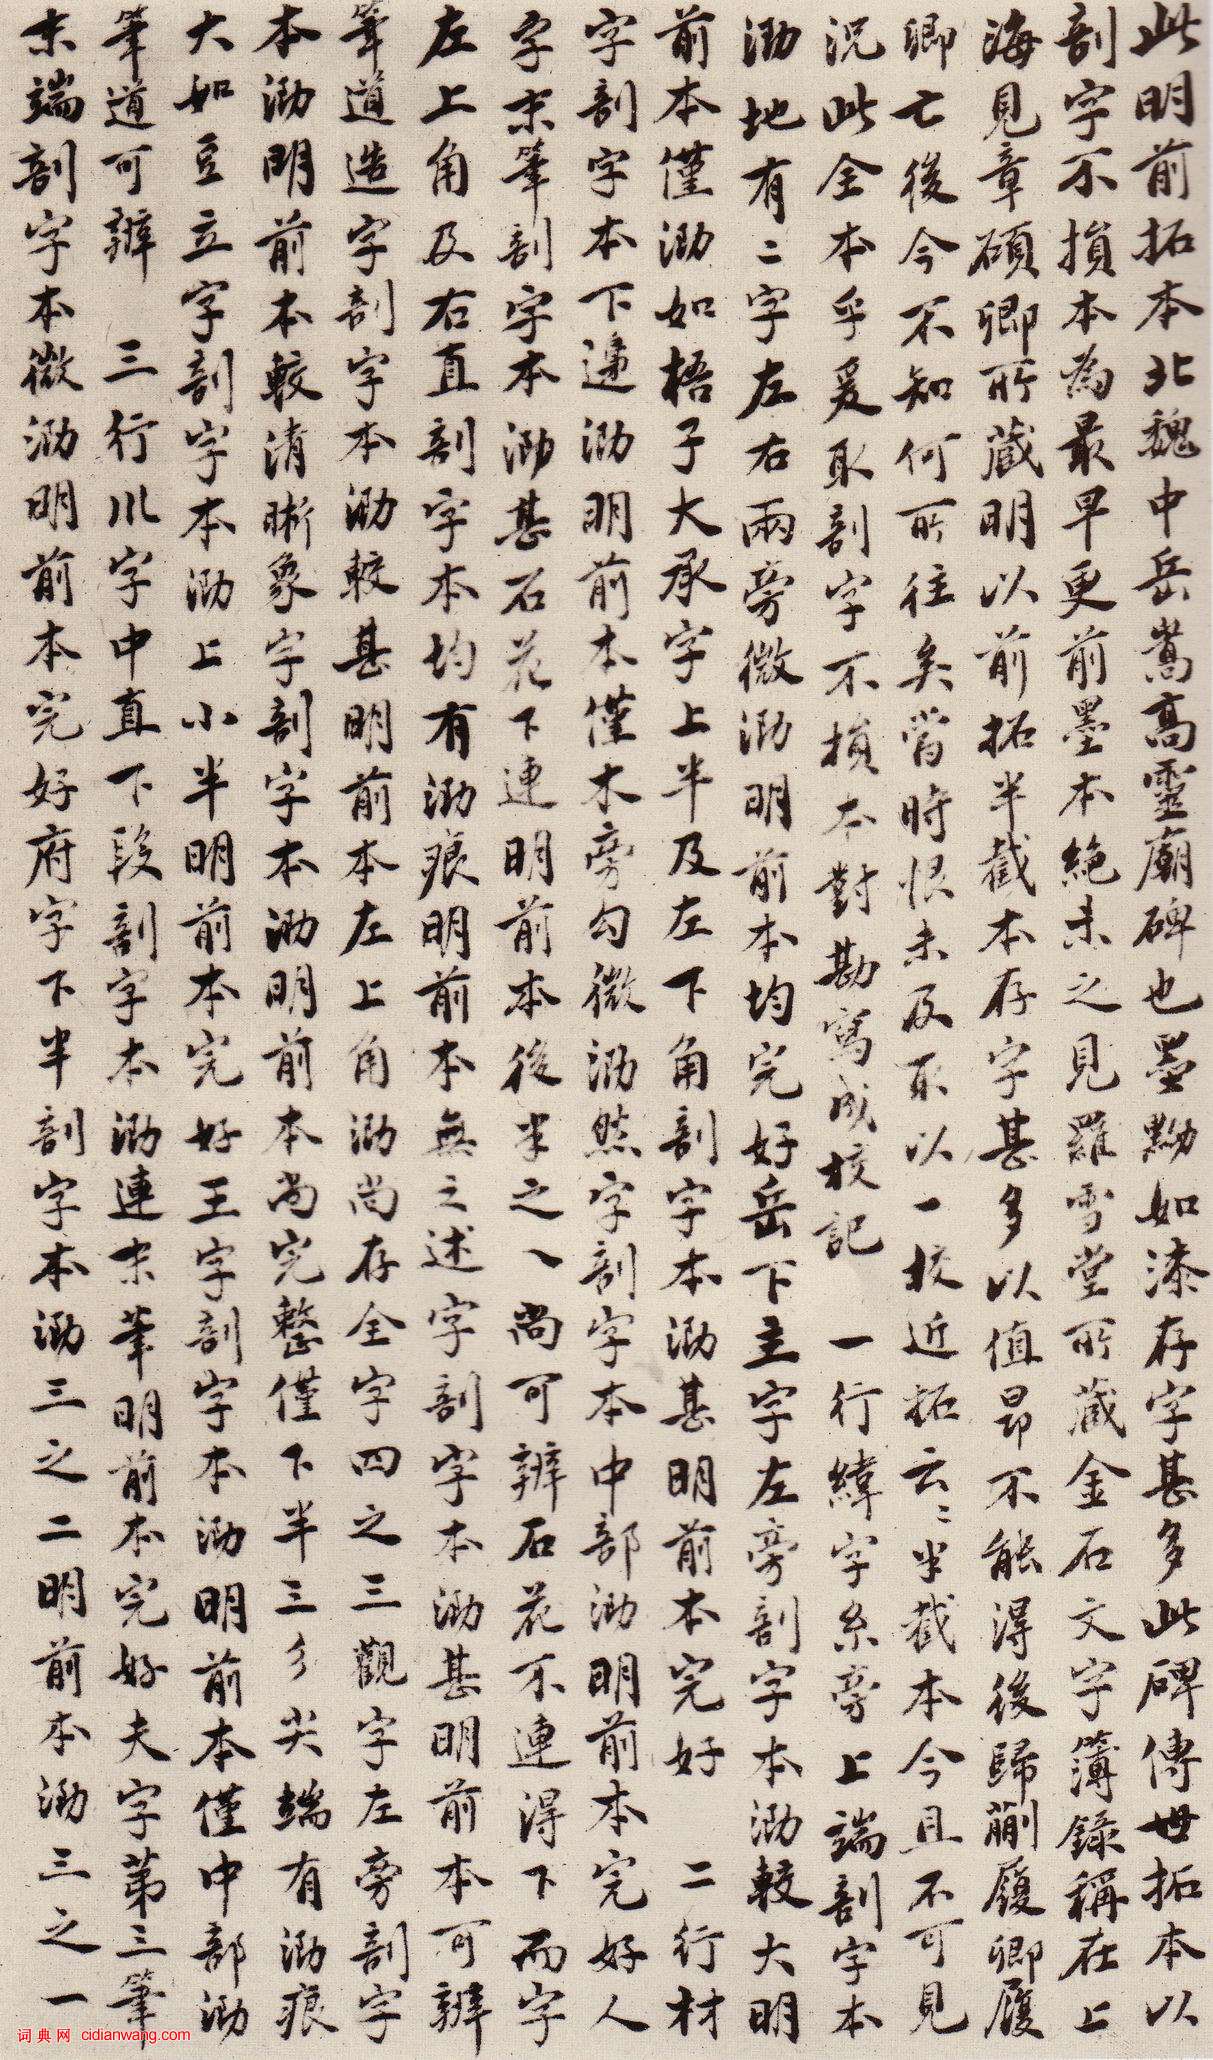 此明前拓本北魏中岳嵩高靈廟碑也墨黝如漆存字甚多此碑傳世拓本以
剖字不損本為最早更前墨本絕未之見羅雪堂所藏金石文字簿錄稱在上
海見章碩卿所藏明以前拓半截本存字甚多以值昂不能得後歸蒯履卿履
卿亡後今不知何所往矣當時恨未及取以一校近拓云〻半截本今且不可見
況此全本乎爰取剖字不損本對勘寫成校記 一行緯字糸旁上端剖字本
泐地有二字左右兩旁微泐明前本均完好岳下主字左旁剖字本泐較大明
前本僅泐如梧子大承字上半及左下角剖字本泐甚明前本完好 二行材
字剖字本下邊泐明前本僅木旁勾微泐然字剖字本中部泐明前本完好人
字末筆剖字本泐甚石花下連明前本後半之乀尚可辨石花不連得下而字
左上角及右直剖字本均有泐痕明前本無之述字剖字本泐甚明前本可辨
筆道造字剖字本泐較甚明前本左上角泐尚存全字四之三觀字左旁剖字
本泐明前本較清晰象字剖字本泐明前本尚完整僅下半三彡尖端有泐痕
大如豆立字剖字本泐上小半明前本完好王字剖字本泐明前本僅中部泐
筆道可辨 三行川字中直下段剖字本泐連末筆明前本完好夫字第三筆
末端剖字本微泐明前本完好府字下半剖字本泐三之二明前本泐三之一
词典网 cidianwang.com